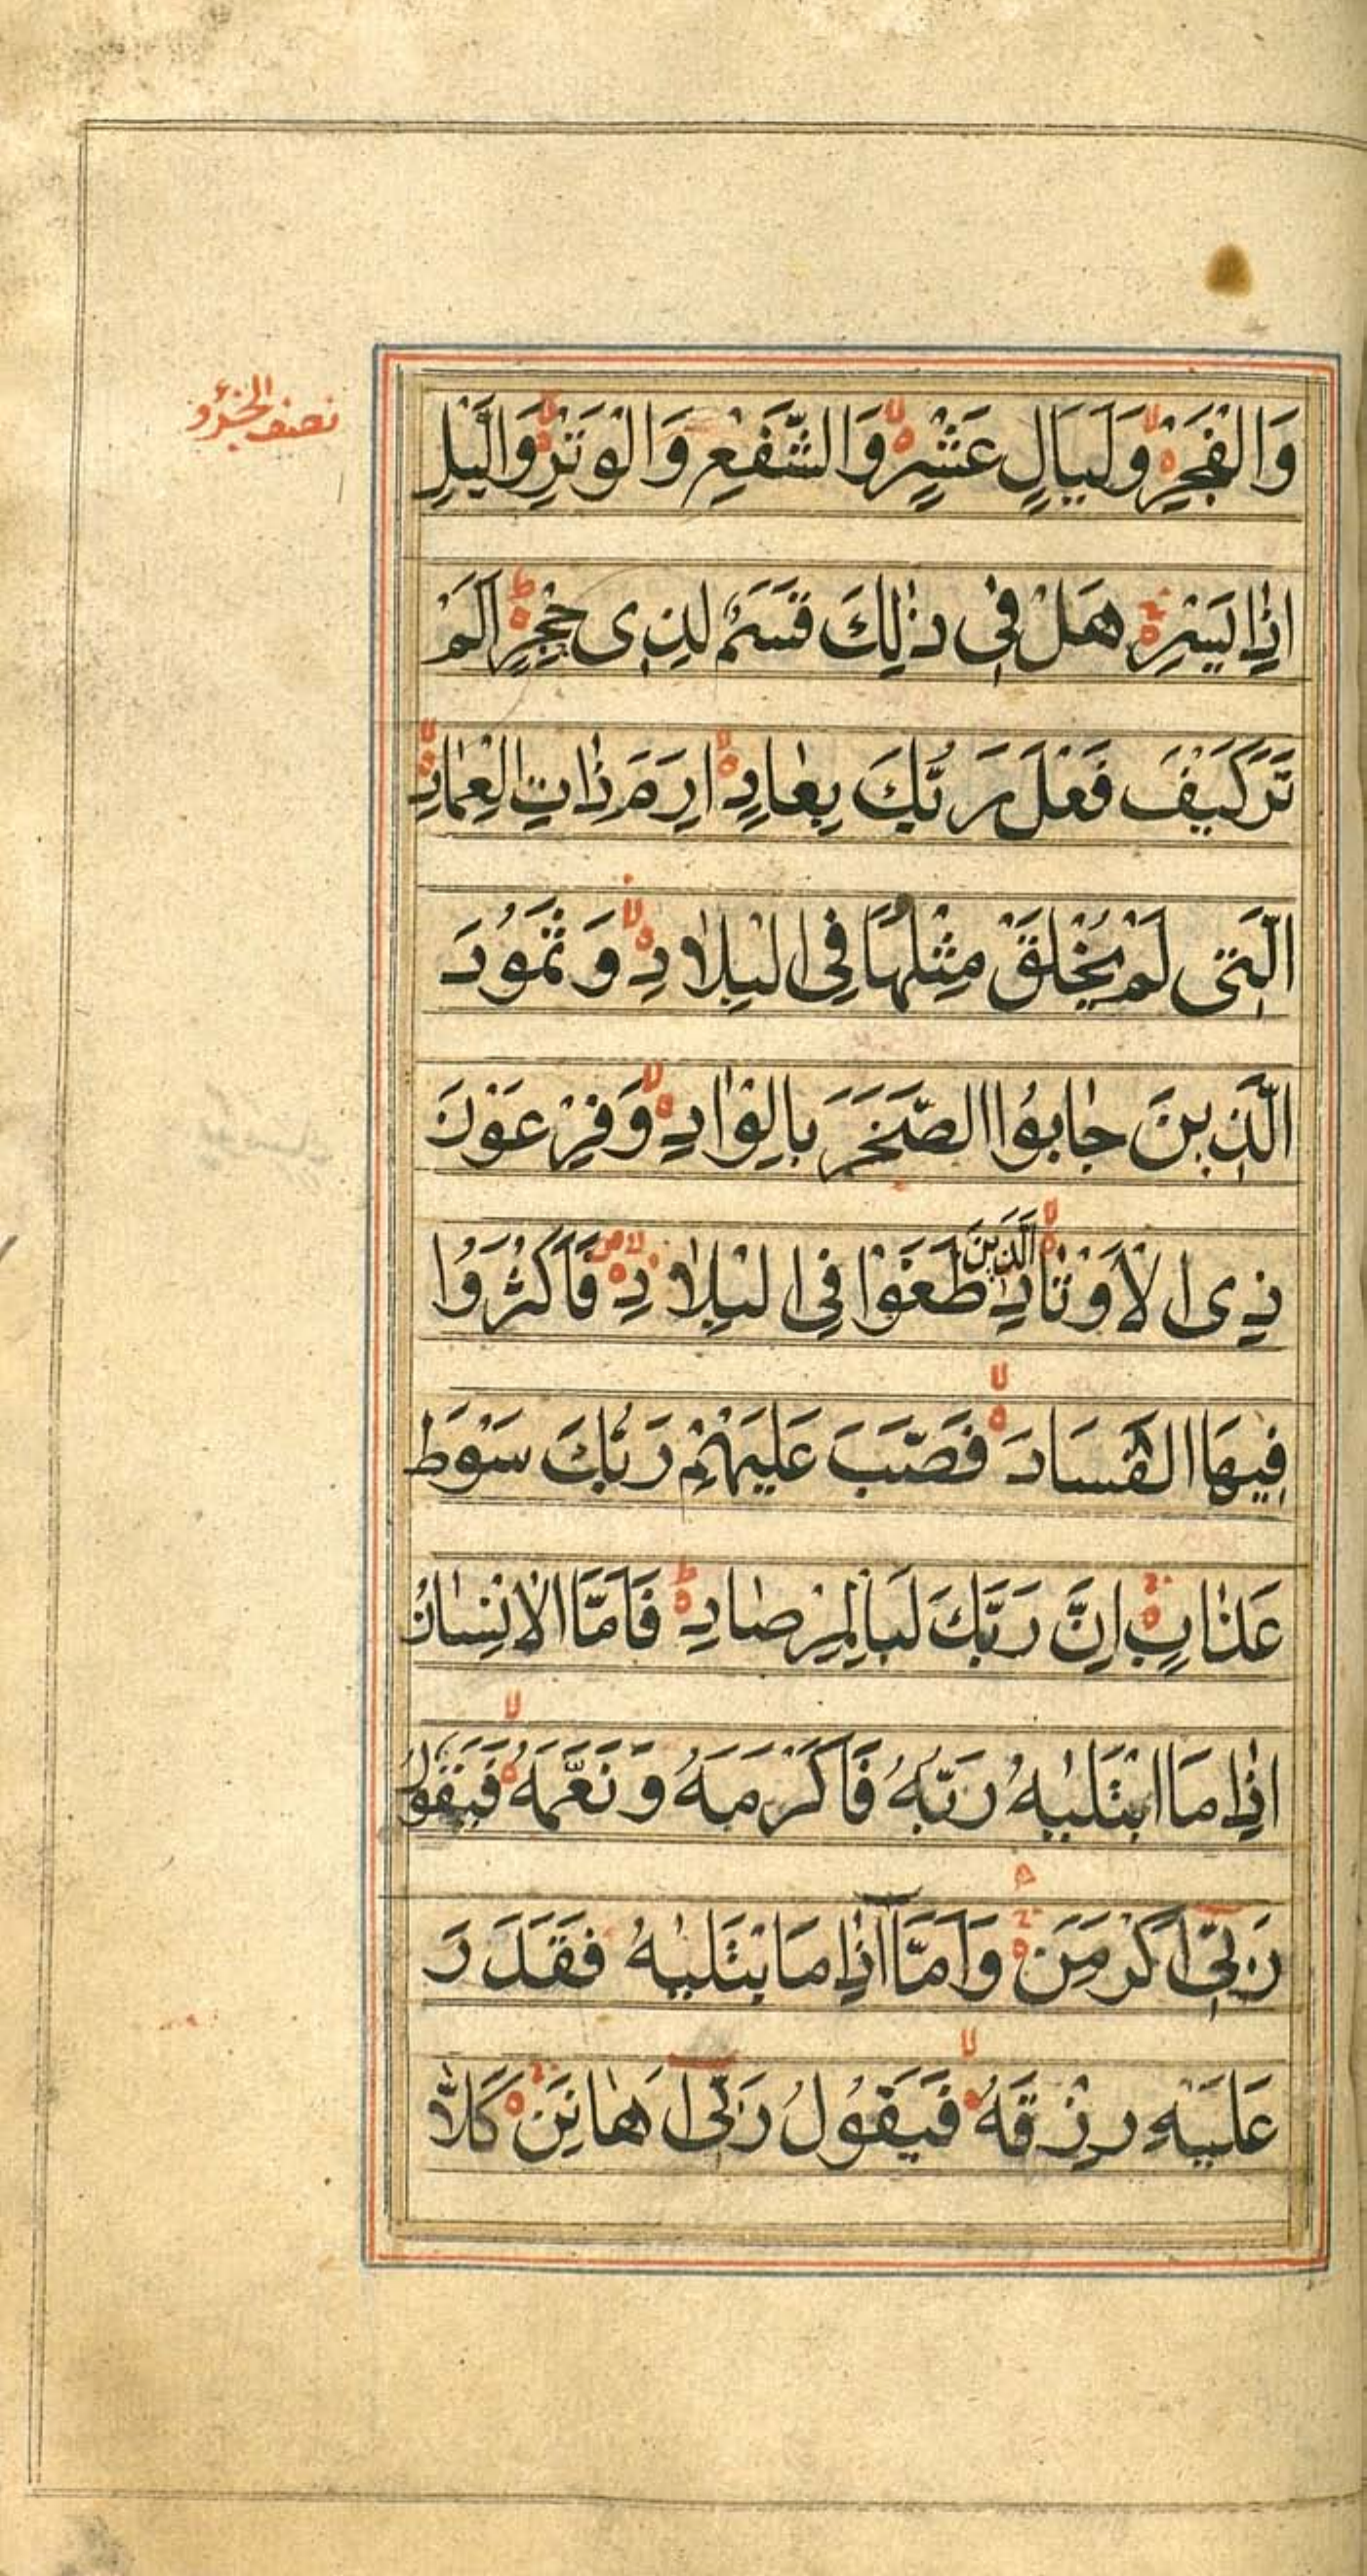 نصف الجزؤ
وَالْفَجْرِ وَلَيَالٍ عَشْرٍ وَالشَّفْعِ وَالْوَتْرِ وَالَّيْلِ
اِذَا يَسْرِ هَلْ فِى ذٰلِكَ قَسَمٌ لِذِى حِجْرٍ اَلَمْ
تَرَ كَيْفَ فَعَلَ رَبُّكَ بِعَادٍ اِرَمَ ذَاتِ الْعِمَادِ
الَّتِى لَمْ يُخْلَقْ مِثْلُهَا فِى الْبِلَادِ وَثَمُودَ
الَّذِينَ جَابُوا الصَّخْرَ بِالْوَادِ وَفِرْعَوْنَ
ذِى الْاَوْتَادِ الَّذِينَ طَغَوْا فِى الْبِلَادِ فَاَكْثَرُوا
فِيهَا الْفَسَادَ فَصَبَّ عَلَيْهِمْ رَبُّكَ سَوْطَ
عَذَابٍ اِنَّ رَبَّكَ لَبِالْمِرْصَادِ فَاَمَّا الْاِنْسَانُ
اِذَا مَا ابْتَلٰيهُ رَبُّهُ فَاَكْرَمَهُ وَنَعَّمَهُ فَيَقُولُ
رَبِّى اَكْرَمَنِ وَاَمَّا اِذَا مَا بْتَلٰيهُ فَقَدَرَ
عَلَيْهِ رِزْقَهُ فَيَقُولُ رَبِّى اَهَانَنِ كَلَّا